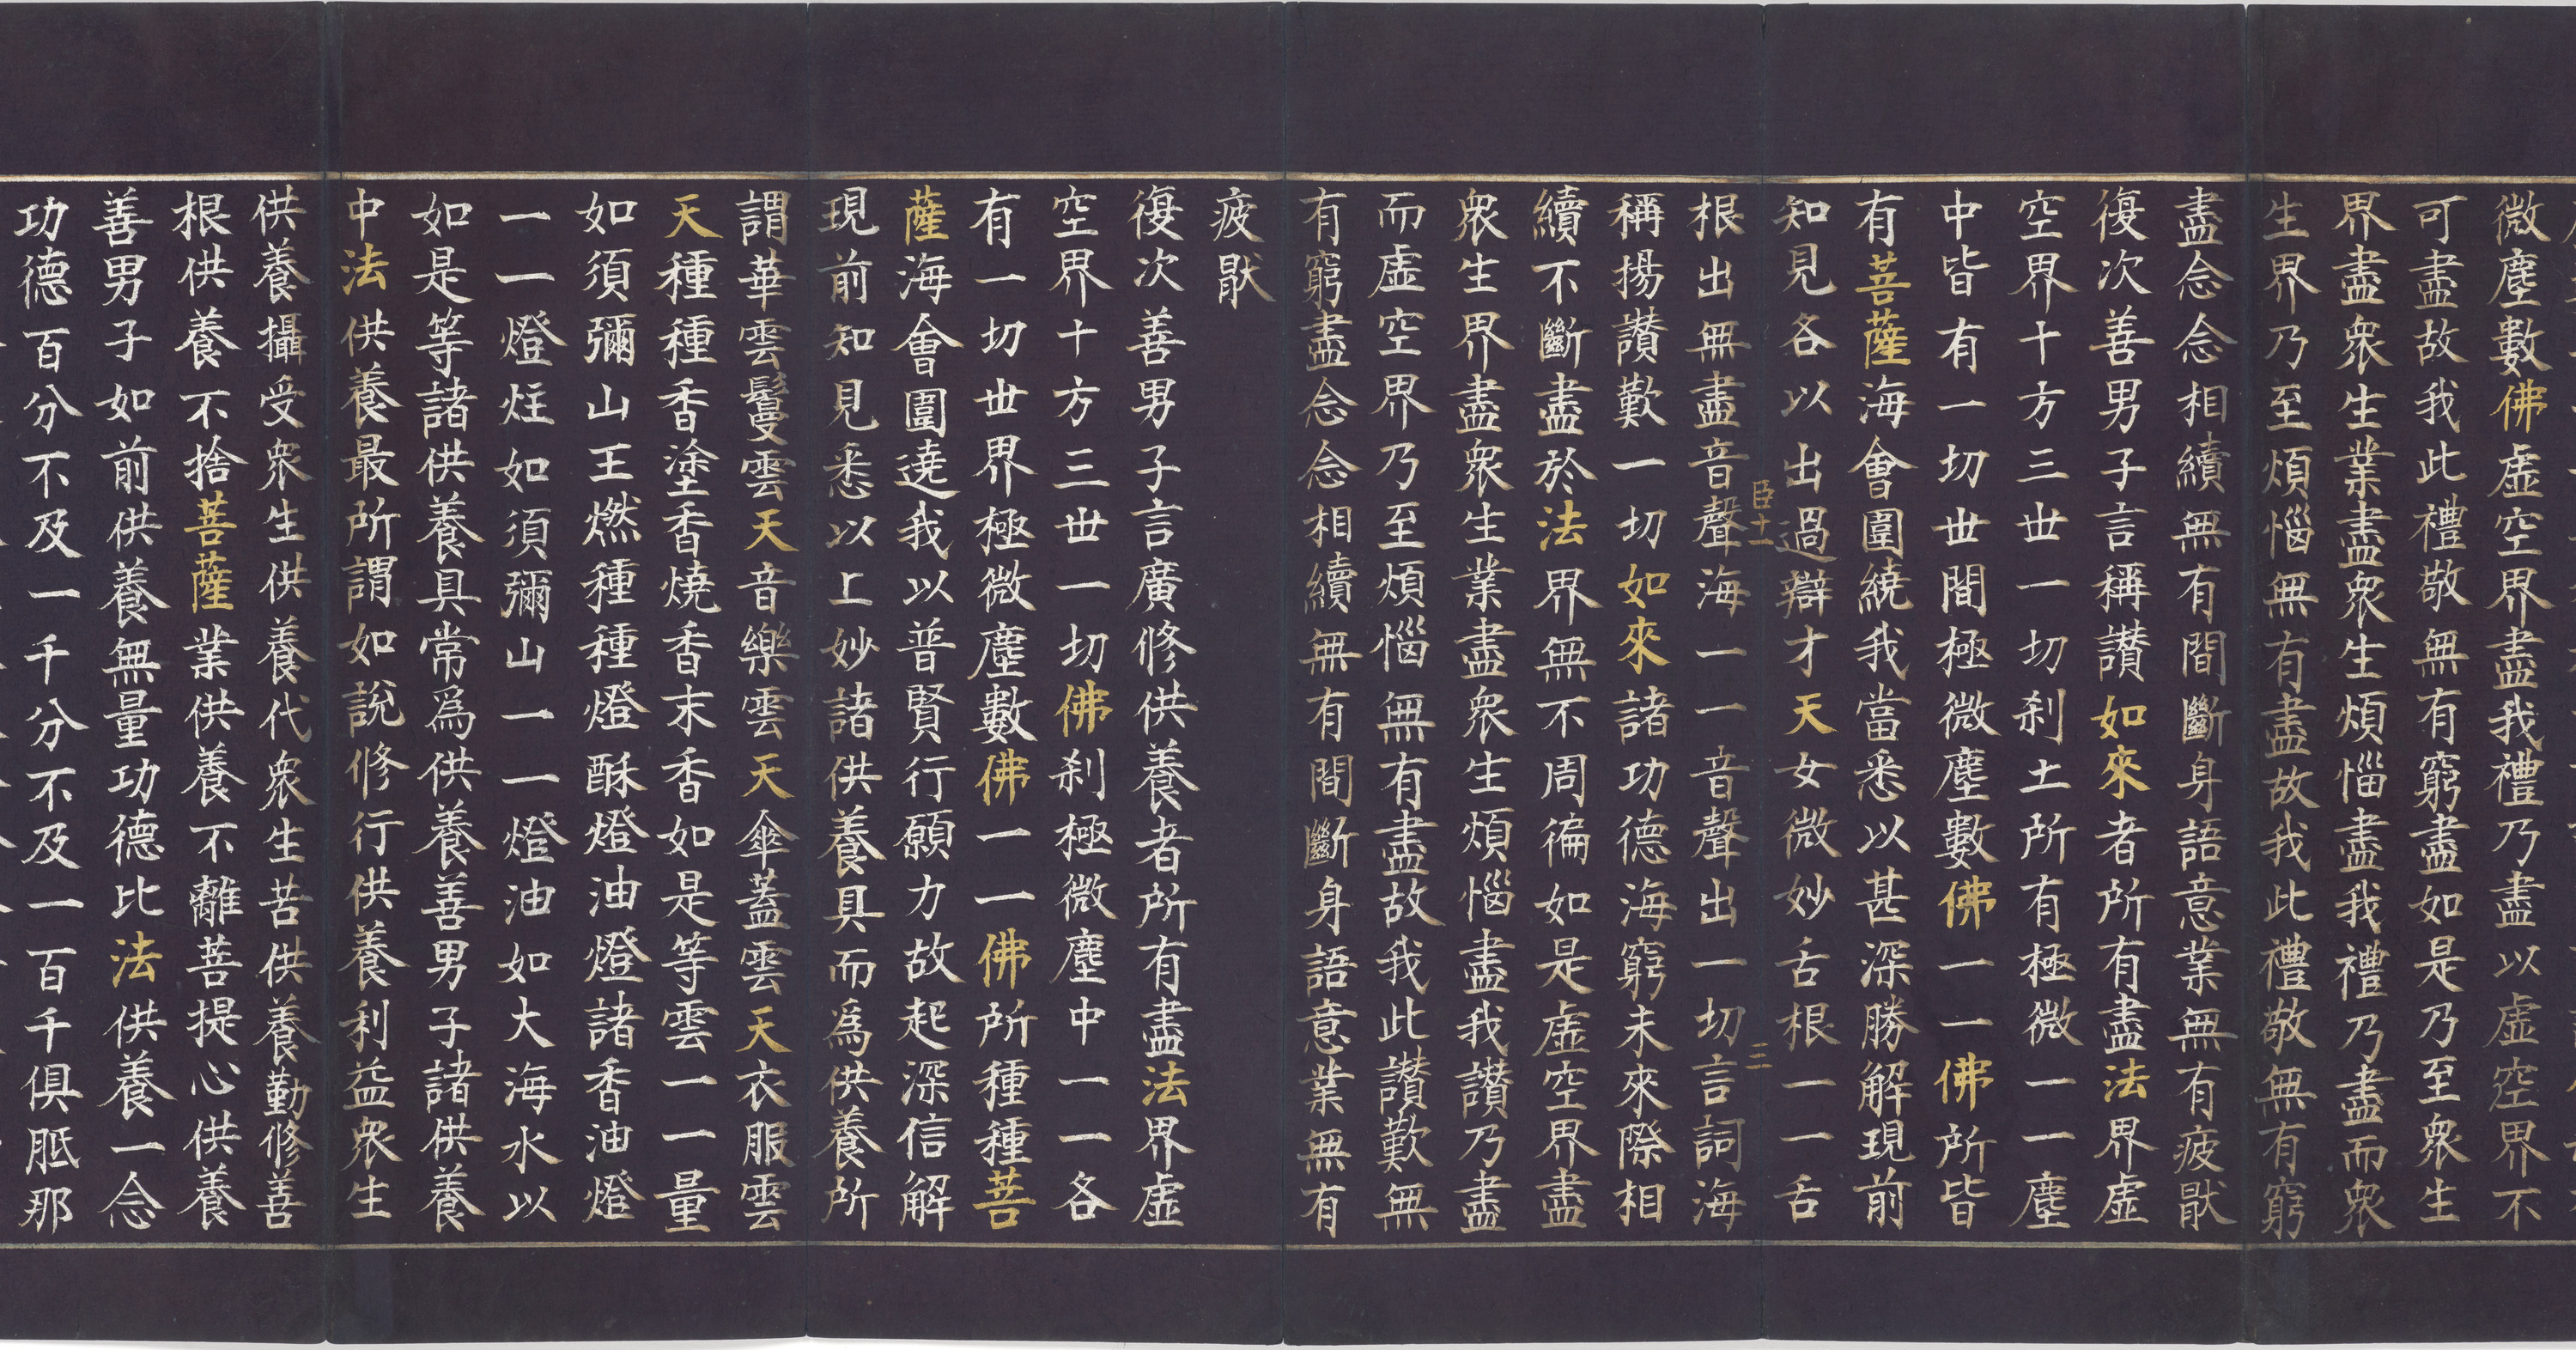 微塵數佛虛空界盡我禮乃盡以虛空界不
可盡故我此禮敬無有窮盡如是乃至衆生
界盡衆生業盡衆生煩惱盡我禮乃盡而衆
生界乃至煩惱無有盡故我此禮敬無有窮
盡念念相續無有間斷身語意業無有疲猒
復次善男子言稱讚如來者所有盡法界虛
空界十方三世一切刹土所有極微一一塵
中皆有一切世間極微塵數佛一一佛所皆
有菩薩海會圍繞我當悉以甚深勝解現前
知見各以出過辯才天女微妙舌根一一舌
臣十一 二
根出無盡音聲海一一音聲出一切言詞海
稱揚讚歎一切如來諸功德海窮未來際相
續不斷盡於法界無不周徧如是虛空界盡
衆生界盡衆生業盡衆生煩惱盡我讚乃盡
而虛空界乃至煩惱無有盡故我此讚歎無
有窮盡念念相續無有間斷身語意業無有
疲猒
復次善男子言廣修供養者所有盡法界虛
空界十方三世一切佛刹極微塵中一一各
有一切世界極微塵數佛一一佛所種種菩
薩海會圍遶我以普賢行願力故起深信解
現前知見悉以上妙諸供養具而爲供養所
謂華雲鬘雲天音樂雲天傘蓋雲天衣服雲
天種種香塗香燒香末香如是等雲一一量
如須彌山王燃種種燈酥燈油燈諸香油燈
一一燈炷如須彌山一一燈油如大海水以
如是等諸供養具常爲供養善男子諸供養
中法供養最所謂如說修行供養利益衆生
供養攝受衆生供養代衆生苦供養勤修善
根供養不捨菩薩業供養不離菩提心供養
善男子如前供養無量功德比法供養一念
功德百分不及一千分不及一百千俱胝那